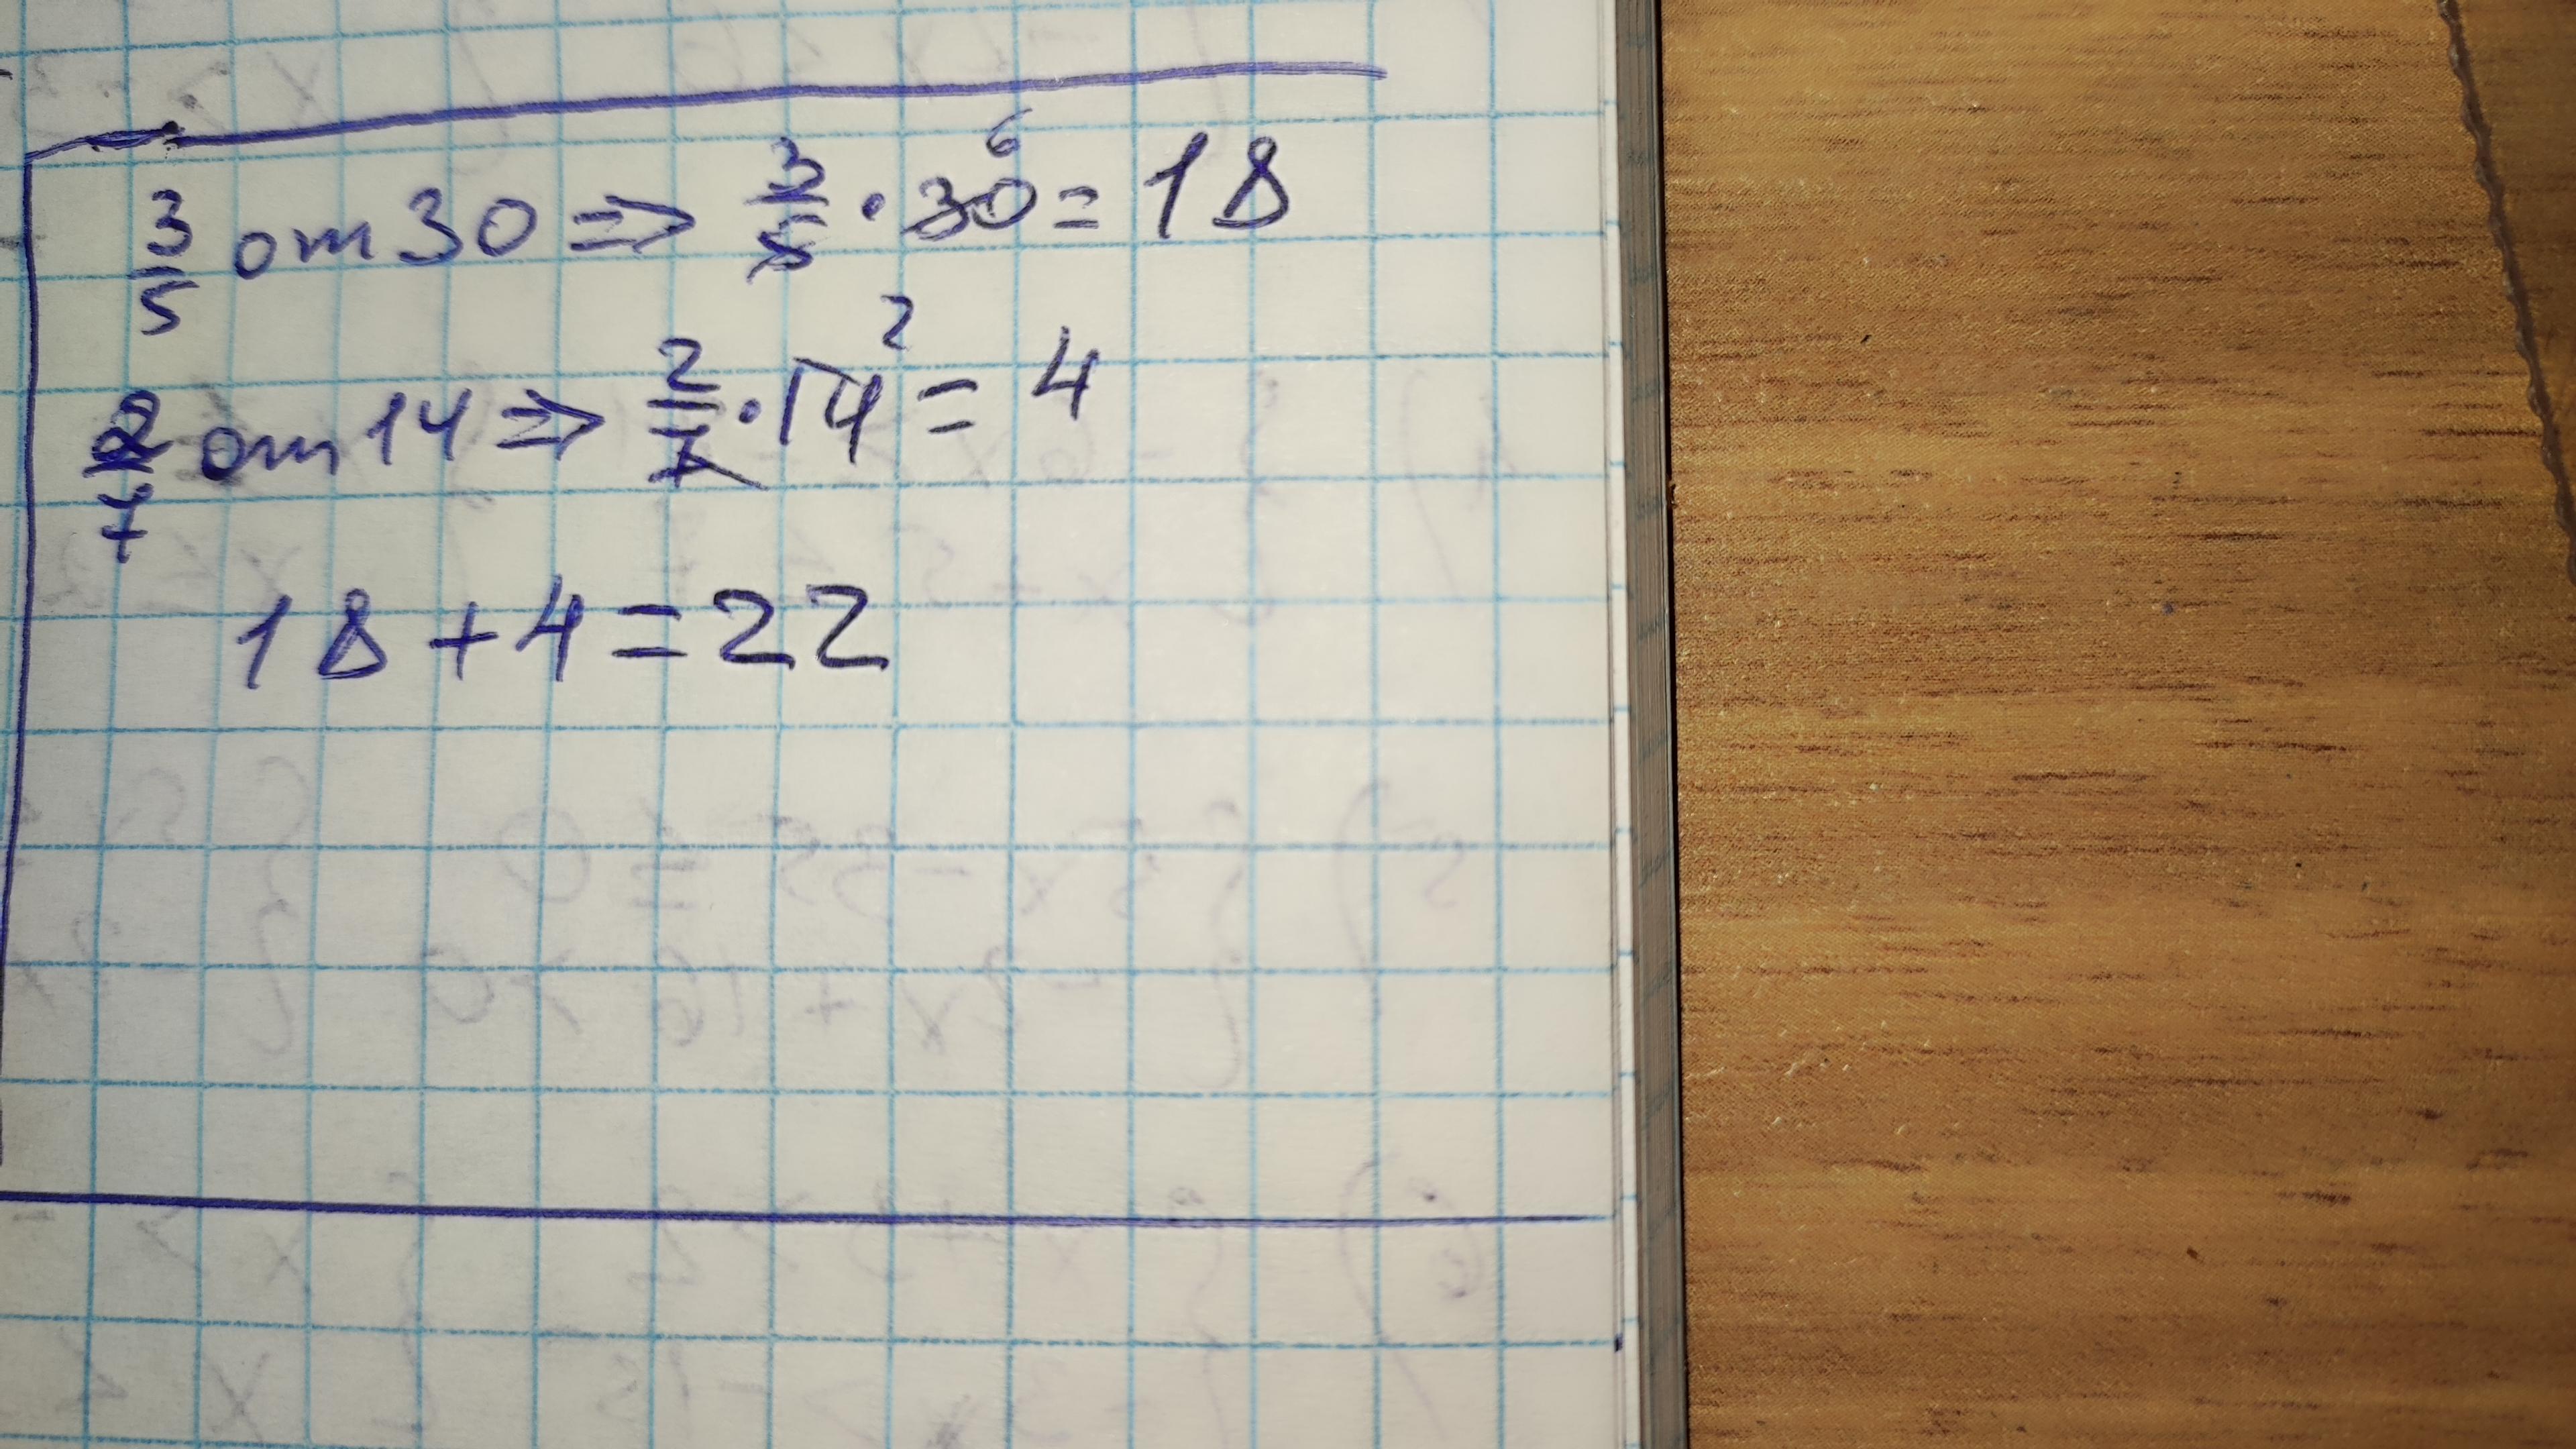 3/5 от 30 => 3/5 · 30 6 = 18
2/7 от 14 => 2/7 · 14 2 = 4
18 + 4 = 22